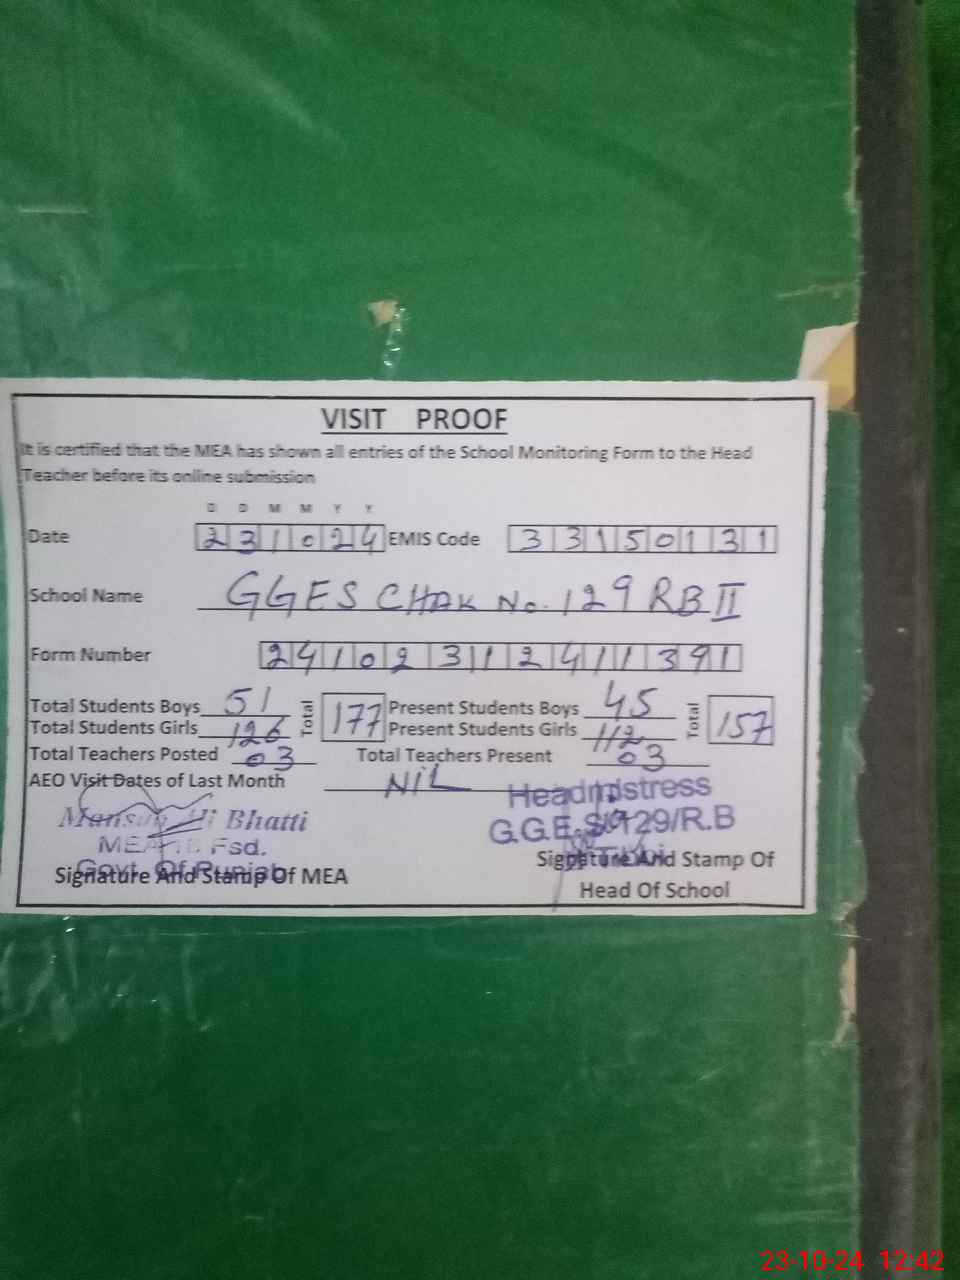 VISIT PROOF
It is certified that the MEA has shown all entries of the School Monitoring Form to the Head
Teacher before its online submission
D D M M Y Y
Date 231024 EMIS Code 33150131
School Name GGES CHAK No. 129 RB II
Form Number 24102311241 1391
Total Students Boys 51 Total 177 Present Students Boys 45 Total 157
Total Students Girls 126 Present Students Girls 112
Total Teachers Posted 03 Total Teachers Present 03
AEO Visit Dates of Last Month NIL
Mansab Ali Bhatti
MEA Fsd.
Govt. Of Punjab
Signature And Stamp Of MEA
Headmistress
G.G.E.S 129/R.B
Signature And Stamp Of
Head Of School
23-10-24 12:42